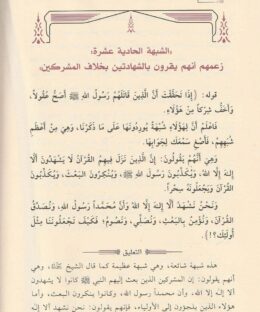 الشبهة الحادية عشرة:
زعمهم أنهم يقرون بالشهادتين بخلاف المشركين.
قوله: (إِذَا تَحَقَّقْتَ أَنَّ الَّذِينَ قَاتَلَهُمْ رَسُولُ اللهِ ﷺ أَصَحُّ عُقُولاً،
وَأَخَفُّ شِرْكاً مِنْ هَؤُلَاءِ.
فَاعْلَمْ أَنَّ لِهَؤُلَاءِ شُبْهَةً يُورِدُونَهَا عَلَى مَا ذَكَرْنَا، وَهِيَ مِنْ أَعْظَمِ
شُبَهِهِمْ، فَأَصْغِ سَمْعَكَ لِجَوَابِهَا.
وَهِيَ: أَنَّهُمْ يَقُولُونَ: إِنَّ الَّذِينَ نَزَلَ فِيهِمُ الْقُرْآنُ لَا يَشْهَدُونَ أَلَّا
إِلَهَ إِلَّا اللهُ، وَيُكَذِّبُونَ رَسُولَ اللهِ ﷺ، وَيُنْكِرُونَ الْبَعْثَ، وَيُكَذِّبُونَ
الْقُرْآنَ وَيَجْعَلُونَهُ سِحْراً.
وَنَحْنُ نَشْهَدُ أَلَّا إِلَهَ إِلَّا اللهُ وَأَنَّ مُحَمَّداً رَسُولُ اللهِ، وَنُصَدِّقُ
الْقُرْآنَ، وَنُؤْمِنُ بِالْبَعْثِ، وَنُصَلِّي، وَنَصُومُ، فَكَيْفَ تَجْعَلُونَنَا مِثْلَ
أُولَئِكَ؟!).
التعليق
هذه شبهة شائعة، وهي شبهة عظيمة كما قال الشيخ، وهي
أنهم يقولون: إن المشركين الذين بعث إليهم النبي ﷺ كانوا لا يشهدون
ألا إله إلا الله، وأن محمداً رسول الله، وكانوا ينكرون البعث، وأما
هؤلاء الذين يلجؤون إلى الأولياء، فإنهم يقولون: نحن نشهد ألا إله